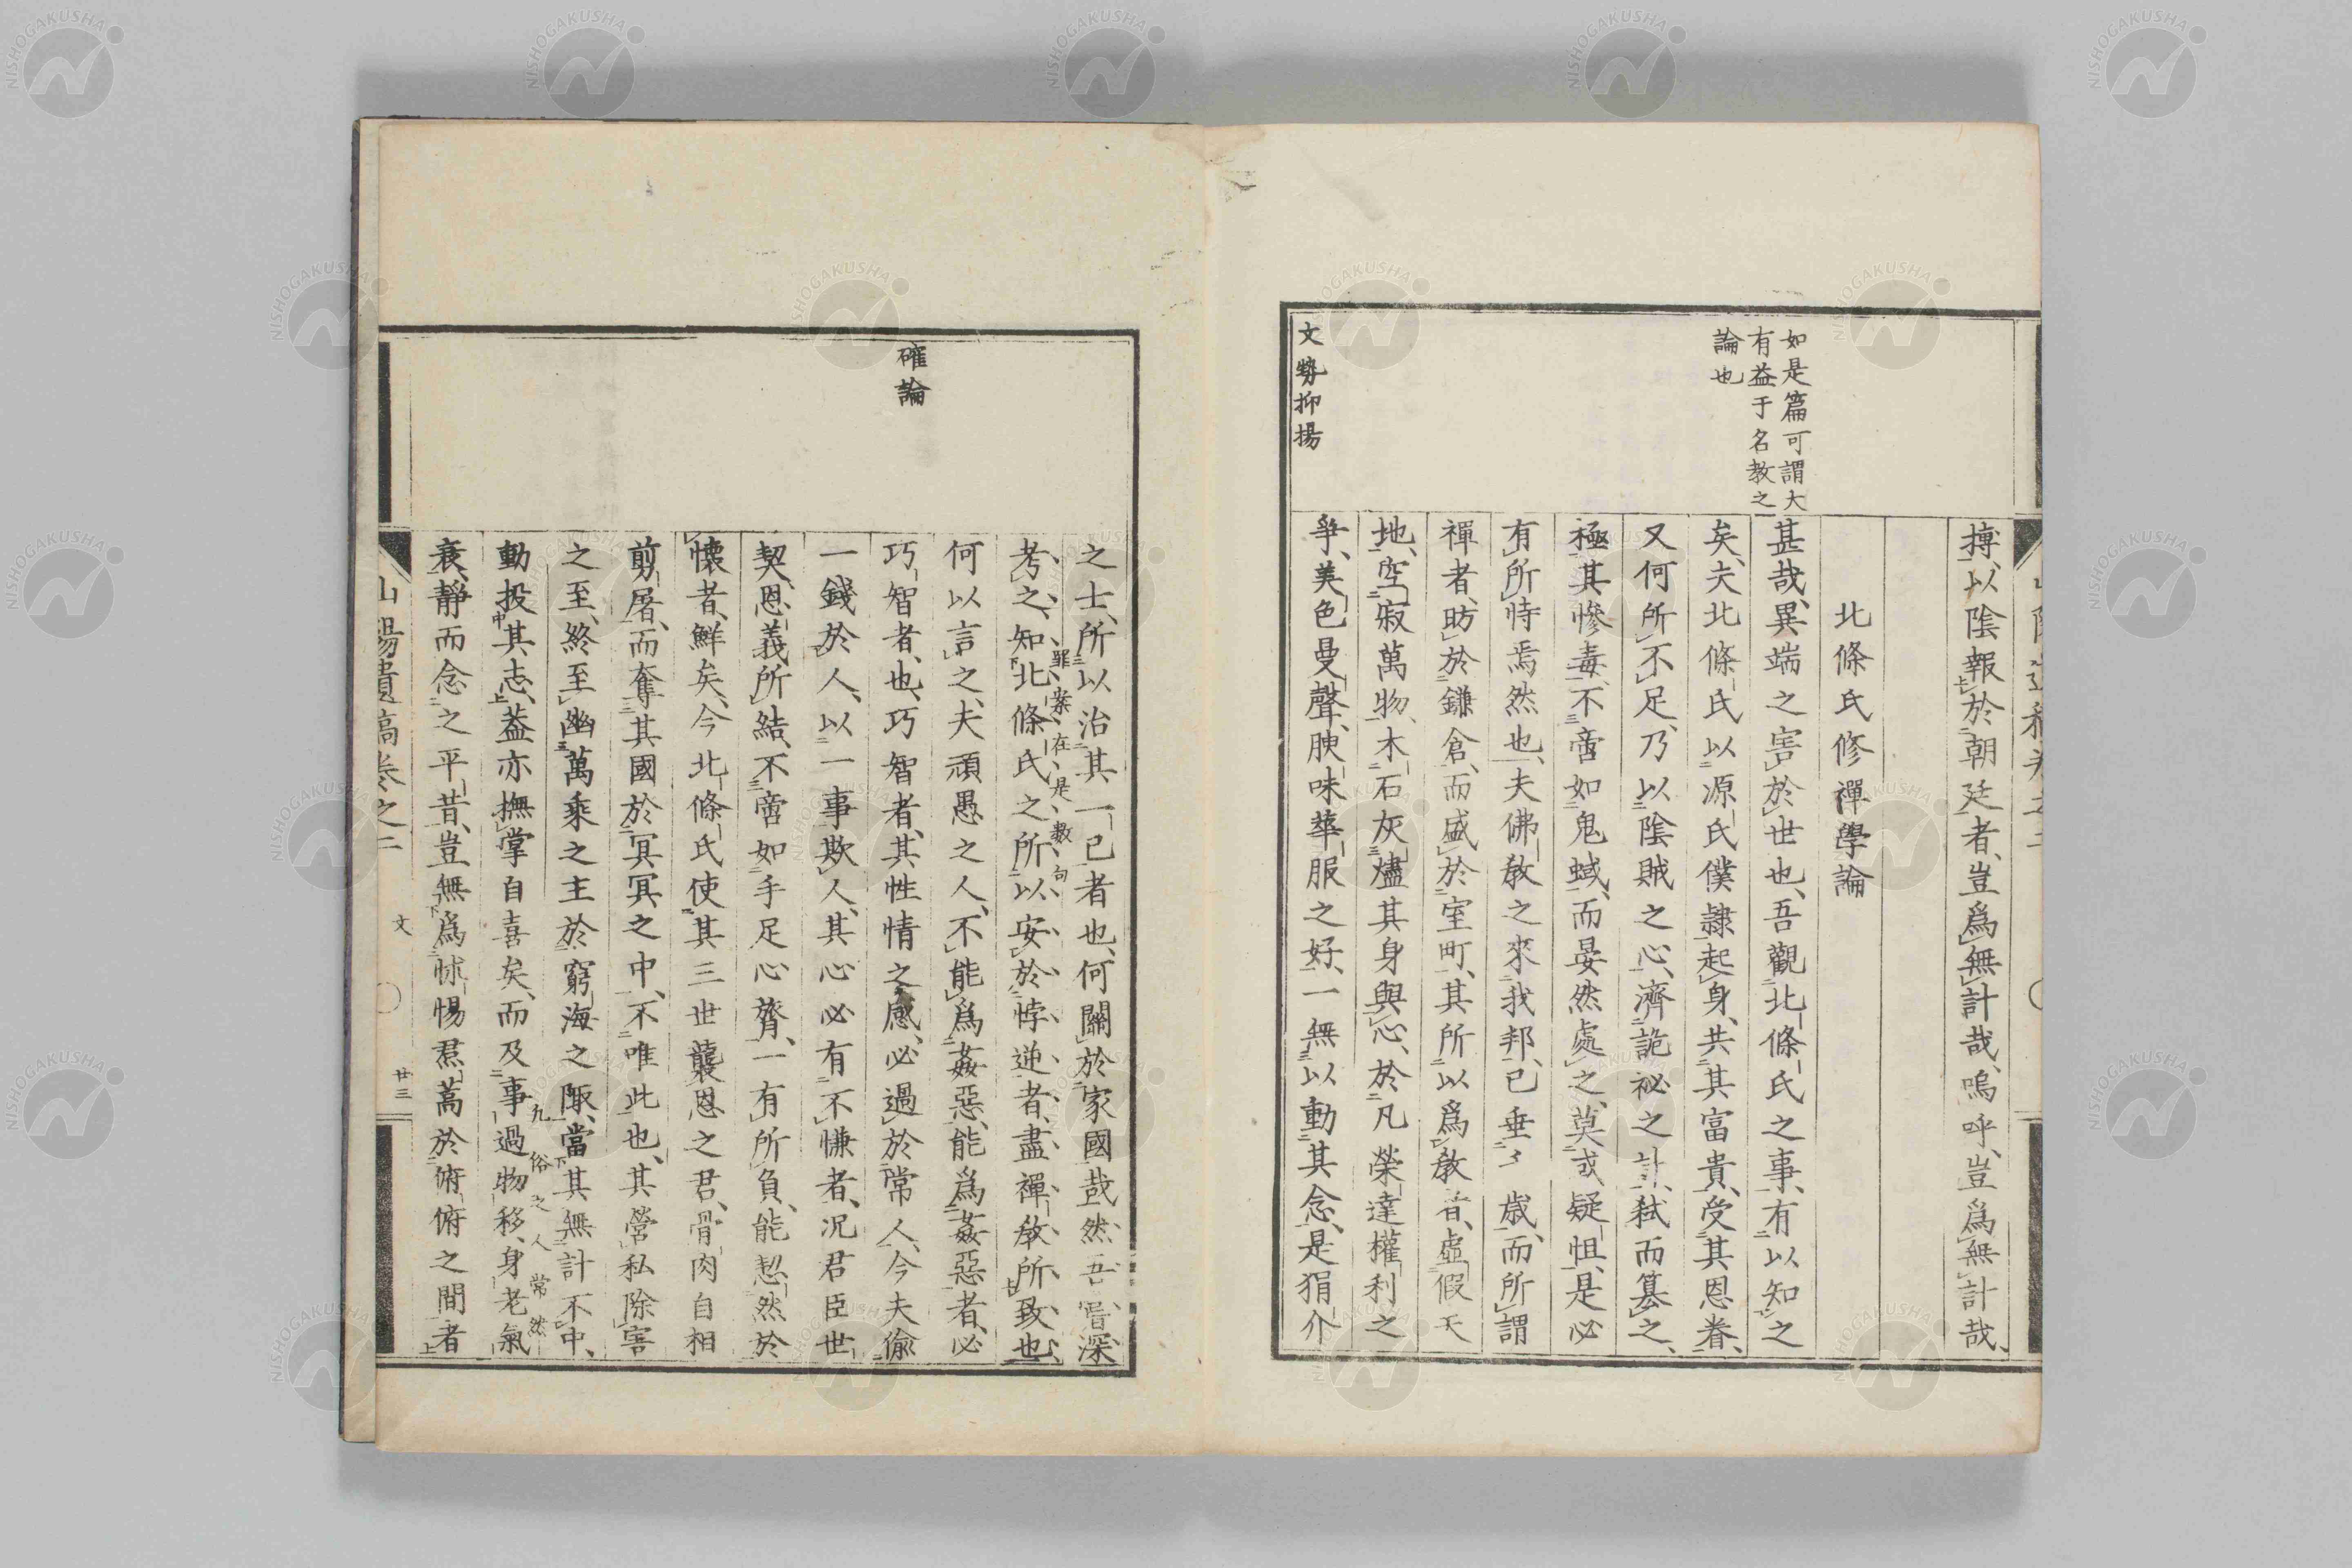 搏以陰報於朝廷者、豈爲無計哉、嗚呼、豈爲無計哉、
北條氏修禪學論
如是篇可謂大
有益于名教之
論也
甚哉、異端之害於世也、吾觀北條氏之事、有以知之
矣、夫北條氏以源氏僕隷起身、共其富貴、受其恩眷、
又何所不足、乃以陰賊之心、濟詭祕之計、弑而簒之、
極其慘毒、不啻如鬼蜮、而晏然處之、莫或疑怛、是必
有所恃焉然也、夫佛敎之來我邦、已垂歲、而所謂
禪者、昉於鎌倉、而盛於室町、其所以爲敎者、虛假天
地、空寂萬物、木石灰燼其身與心、於凡榮達權利之
文勢抑揚
爭、美色曼聲、腴味華服之好、一無以動其念、是狷介
之士、所以治其一已者也、何關於家國哉然吾嘗深
考之、知北條氏之所以安於悖逆者、盡禪敎所致也、
罪案在是數句
何以言之、夫頑愚之人、不能爲姦惡、能爲姦惡者、必
確論
巧智者也、巧智者、其性情之感、必過於常人、今夫偸
一錢於人、以一事欺人、其心必有不慊者、况君臣世
契、恩義所結、不啻如手足心膂、一有所負、能恝然於
懷者、鮮矣、今北條氏使其三世襲恩之君、骨肉自相
剪屠、而奪其國於冥冥之中、不唯此也、其營私除害
之至、終至幽萬乘之主於窮海之陬、當其無計不中、
動投其志、葢亦撫掌自喜矣、而及事過物移、身老氣
凡俗之人常然
衰、靜而念之平昔、豈無爲怵惕焄蒿於俯俯之間者
山陽遺稿卷之二
文
廿三